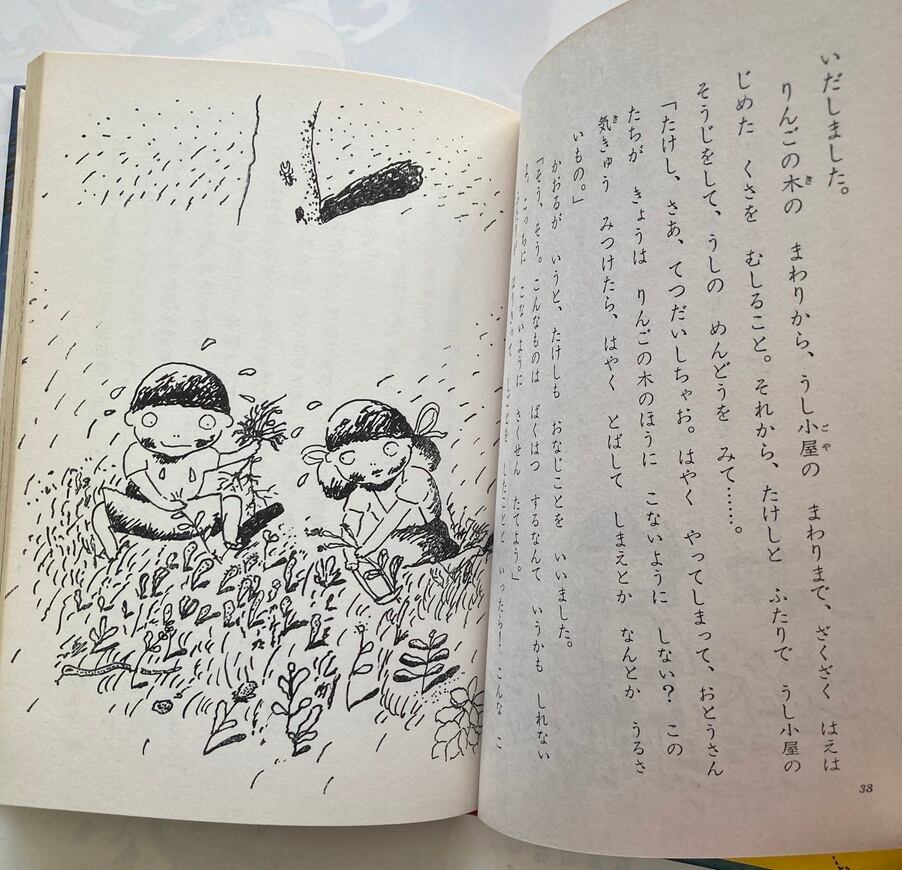 いだしました。
りんごの木の まわりから、うし小屋の まわりまで、ざくざく はえは
じめた くさを むしること。それから、たけしと ふたりで うし小屋の
そうじをして、うしの めんどうを みて……。
「たけし、さあ、てつだいしちゃお。はやく やってしまって、おとうさん
たちが きょうは りんごの木のほうに こないように しない? この
気きゅう みつけたら、はやく とばして しまえとか なんとか うるさ
いもの。」
かおるが いうと、たけしも おなじことを いいました。
「そう、そう。こんなものは ばくはつ するなんて いうかも しれない
よ。こっちに こないように さくせん たてよう。」
はりきって しごとを したことと いったら! こんな こ
33